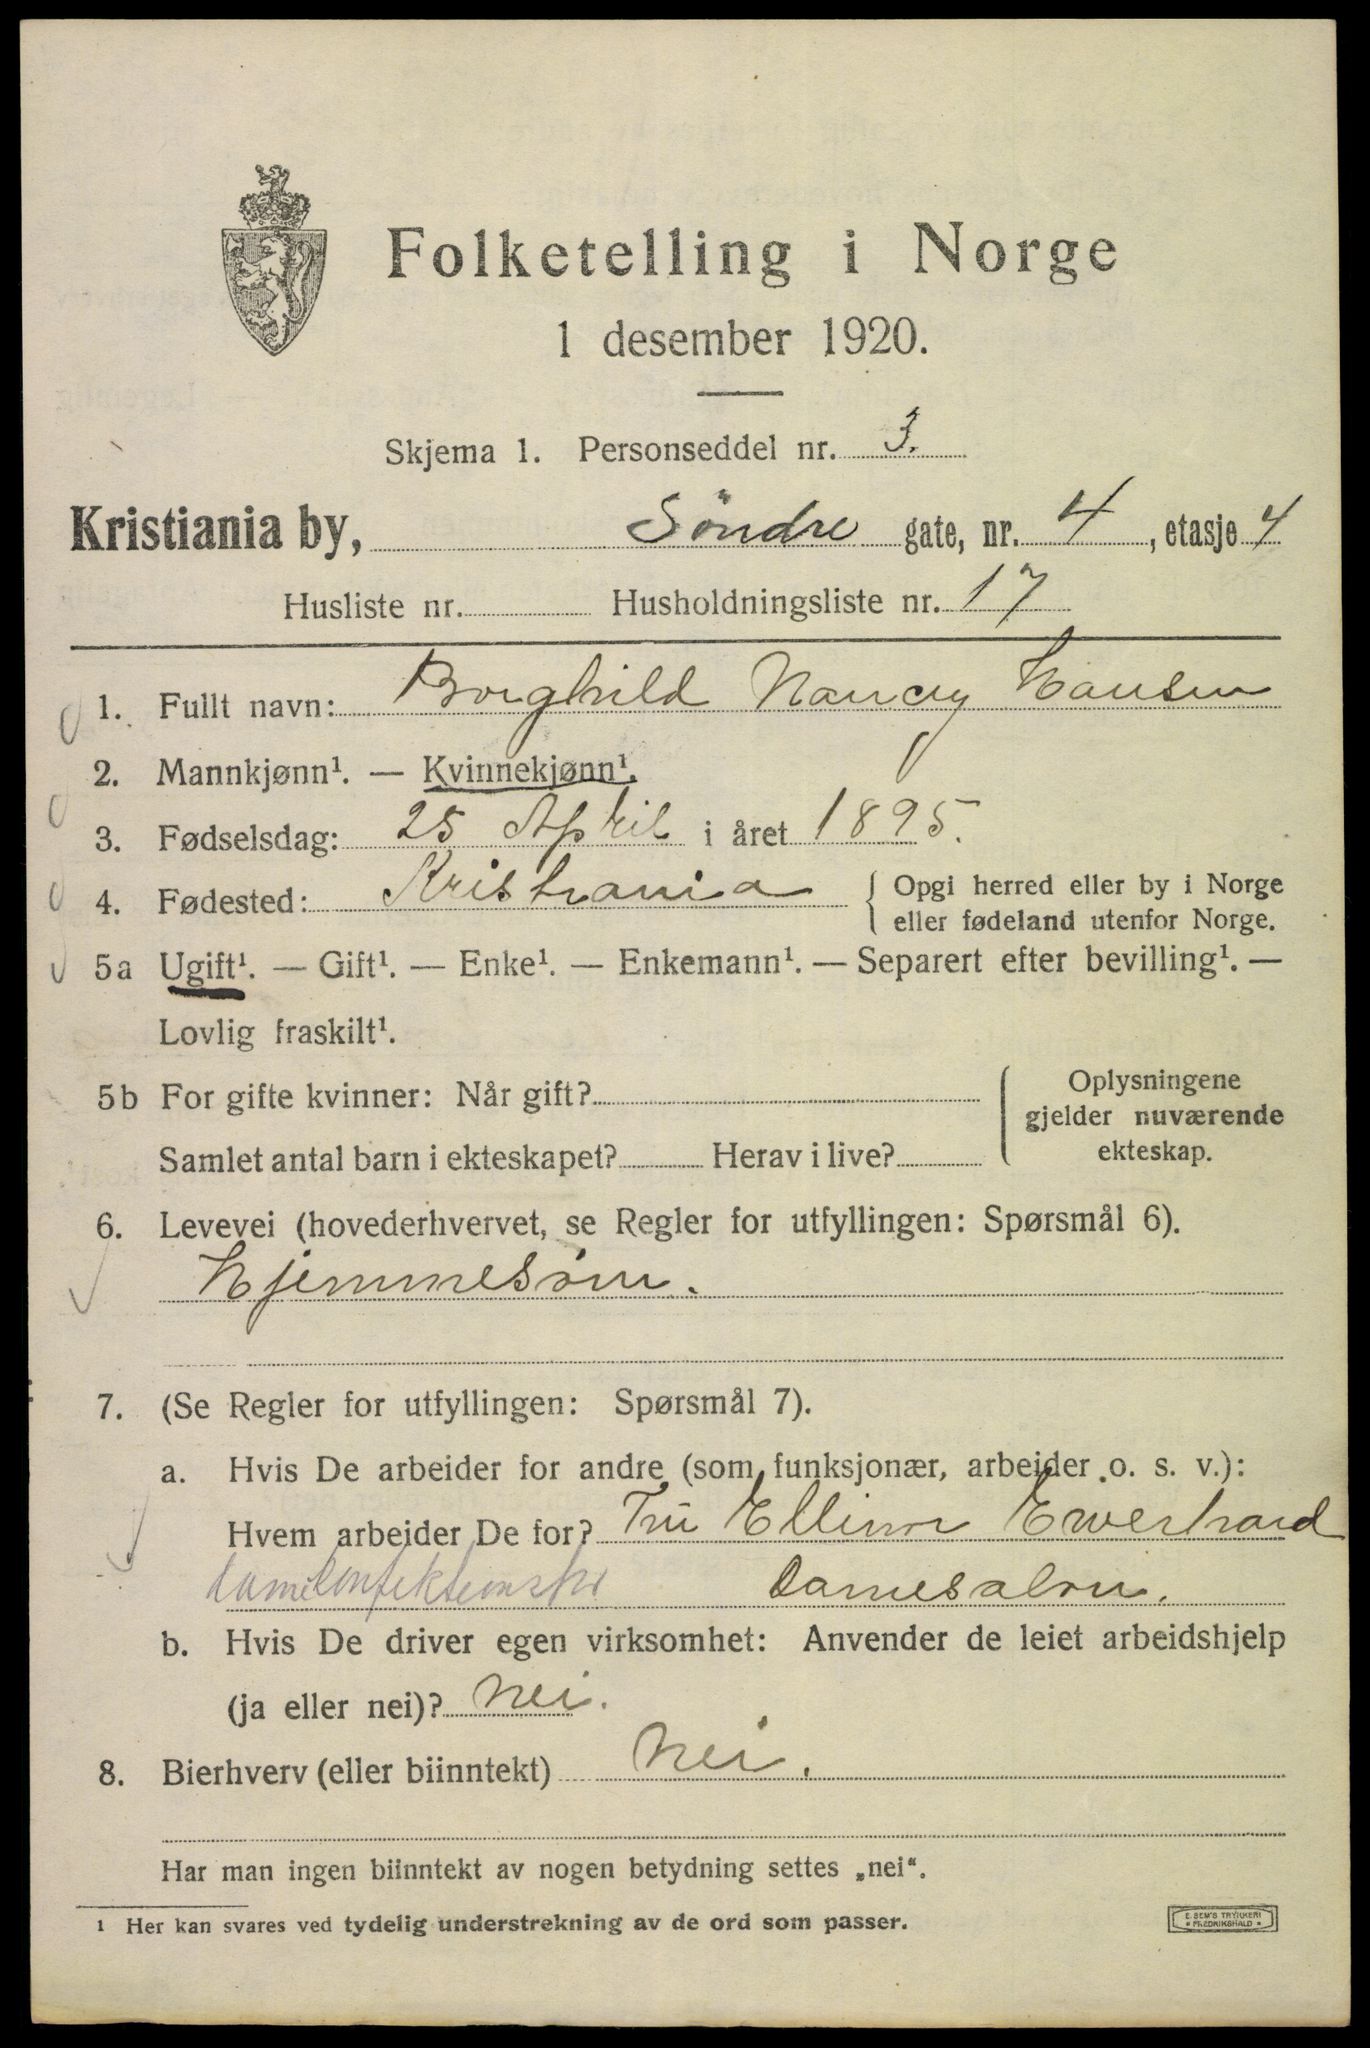 Folketelling i Norge
1 desember 1920.
Skjema 1. Personseddel nr. 3.
Kristiania by, Söndre gate, nr. 4, etasje 4
Husliste nr. Husholdningsliste nr. 17
1. Fullt navn: Borghild Nancy Hansen
2. Mannkjønn¹. — Kvinnekjønn¹.
3. Fødselsdag: 25 April i året 1895.
4. Fødested: Kristiania { Opgi herred eller by i Norge
eller fødeland utenfor Norge.
5a Ugift¹. — Gift¹. — Enke¹. — Enkemann¹. — Separert efter bevilling¹. —
Lovlig fraskilt¹.
5b For gifte kvinner: Når gift? { Oplysningene
gjelder nuværende
Samlet antal barn i ekteskapet? Herav i live? ekteskap.
6. Levevei (hovederhvervet, se Regler for utfyllingen: Spørsmål 6).
Hjemmesöm.
7. (Se Regler for utfyllingen: Spørsmål 7).
a. Hvis De arbeider for andre (som funksjonær, arbeider o. s. v.):
Hvem arbeider De for? Fru Ellinor Ewerhard
Damesalon.
b. Hvis De driver egen virksomhet: Anvender de leiet arbeidshjelp
(ja eller nei)? Nei.
8. Bierhverv (eller biinntekt) Nei.
Har man ingen biinntekt av nogen betydning settes „nei“.
¹ Her kan svares ved tydelig understrekning av de ord som passer.
E. SEM'S TRYKKERI
FREDRIKSHALD